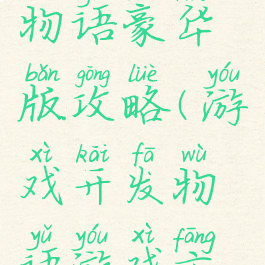 物语豪华
bǎn gōng lüè yóu
版攻略(游
xì kāi fā wù
戏开发物
yǔ yóu xì fāng
语游戏方